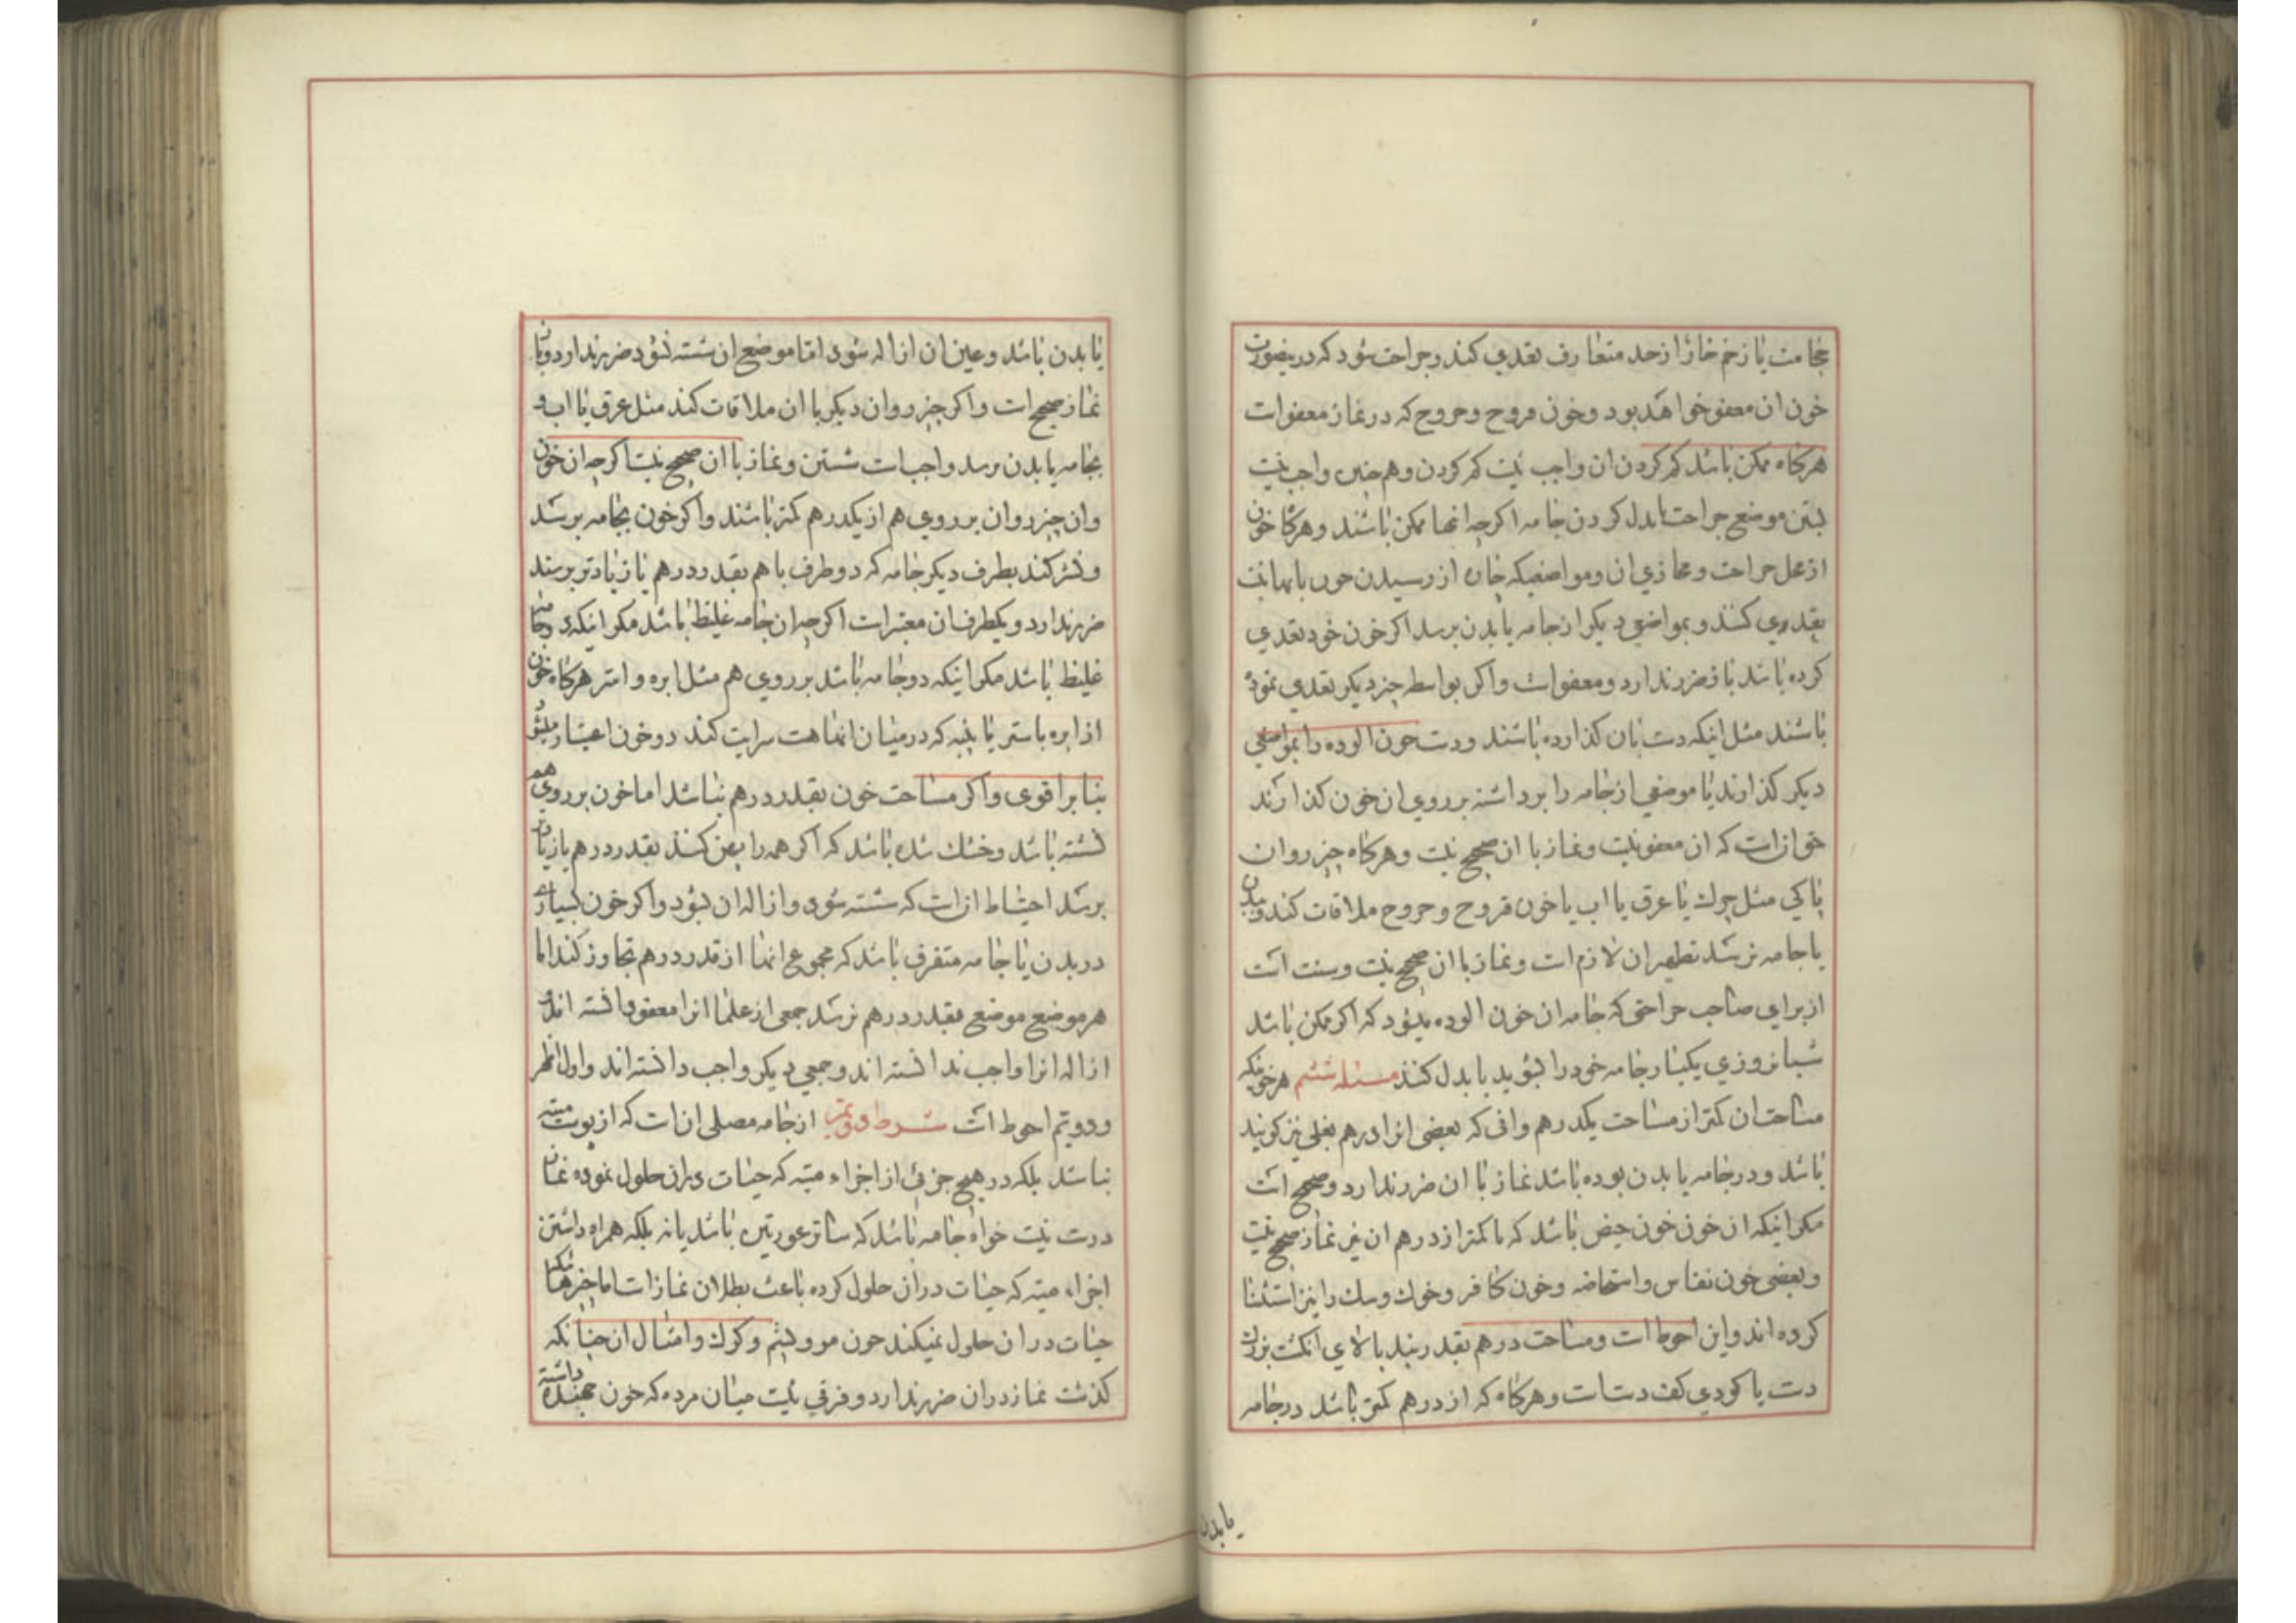 حجامت یا زخم خار از حد متعارف تعدی کند و جراحت شود که درینصورت
خون ان معفو خواهد بود و خون قروح و جروح که در نماز معفوات
هرکاه ممکن باشد کم کردن ان واجب نیت کم کردن و هم چنین واجب نیت
بستن موضع جراحت یا بدل کردن جامه اکرچه انها ممکن باشند و هرکا خون
از محل جراحت و محاذی ان و مواضعیکه از رسیدن خون بانها
تعدی کند و بمواضع دیکر از جامه یا بدن برسد اکر خون خود تعدی
کرده باشد باز ضرر ندارد و معفوات و اکر بواسطه چیز دیکر تعدی نموده
باشند مثل اینکه دت بان کذارده باشند و دت خون الوده را بمواضعی
دیکر کذارند یا موضعی از جامه را برداشته بر روی ان خون کذارند
ات که ان معفو نیت و نماز با ان صحیح نیت و هرکاه چیز روان
پاکی مثل چرك یا عرق یا اب یا خون قروح و جروح ملاقات کند و ببدن
یا جامه برسد تطهیر ان لازم ات و نماز با ان صحیح نیت و سنت ات
از برای صاحب جراحتی که جامه ان خون الوده میشود که اکر ممکن باشد
شبانروزی یکبار جامه خود را بشوید یا بدل کند مسئله ششم هر خونیکه
مساحت ان کمتر از مساحت یکدرهم وافی که بعضی انرا درهم بغلی نیز کویند
باشد و در جامه یا بدن بوده باشد نماز با ان ضرر ندارد و صحیح ات
مکر اینکه ان خون خون حیض باشد که با کمتر از درهم ان نیز نماز صحیح نیت
و بعضی خون نفاس و استحاضه و خون کافر و خوك و سك را نیز استثنا
کرده اند و این احوط ات و مساحت درهم بقدر بند بالای انکشت بزرك
دت یا کودی کف دت ات و هرکاه که از درهم کمتر باشد در جامه
یا بدن
یا بدن باشد و عین ان ازاله شود اما موضع ان شسته نشود ضرر ندارد و بان
نماز صحیح ات و اکر چیز روان دیکر با ان ملاقات کند مثل عرق یا اب و
بجامه یا بدن برسد واجب ات شستن و نماز با ان صحیح نیت اکرچه ان خون
و ان چیز روان بر روی هم از یکدرهم کمتر باشند و اکر خون بجامه برسد
و نشر کند بطرف دیکر جامه که دو طرف با هم بقدر درهم یا زیادتر برسند
ضرر ندارد و یکطرف ان معتبر ات اکرچه ان جامه غلیظ باشد مکر اینکه
غلیظ باشد مکر اینکه دو جامه باشد بر روی هم مثل ابره و استر هرکاه خون
از ابره باستر یا پنبه که در میان انها هت سرایت کند دو خون اعتبار میشود
بنا بر اقوی و اکر مساحت خون بقدر درهم نباشد اما خون بر روی هم
نشسته باشد و خشك شده باشد که اکر همه را پهن کند بقدر درهم یا زیاد
برسد احتیاط ان ات که شسته شود و ازاله ان بشود و اکر خون بسیاری
در بدن یا جامه متفرق باشد که مجموع انها از قدر درهم تجاوز کند اما
هر موضع موضع بقدر درهم نرسد جمعی از علما انرا معفو دانسته اند و
ازاله انرا واجب ندانسته اند و جمعی دیکر واجب دانسته اند و اول اظهر
و دویم احوط ات شرط دویم از جامه مصلی ان ات که از پوست میته
نباشد بلکه در هیچ جزئی از اجزاء میته که حیات در ان حلول نموده نماز
درت نیت خواه جامه باشد که ساتر عورتین باشد یا نه بلکه همراه داشتن
اجزاء میته که حیات در ان حلول کرده باعث بطلان نماز ات اما چیزهائیکه
حیات در ان حلول نمیکند چون مو و پشم و کرك و امثال ان چنانکه
کذشت نماز در ان ضرر ندارد و فرقی نیت میان مرده که خون جهنده داشته